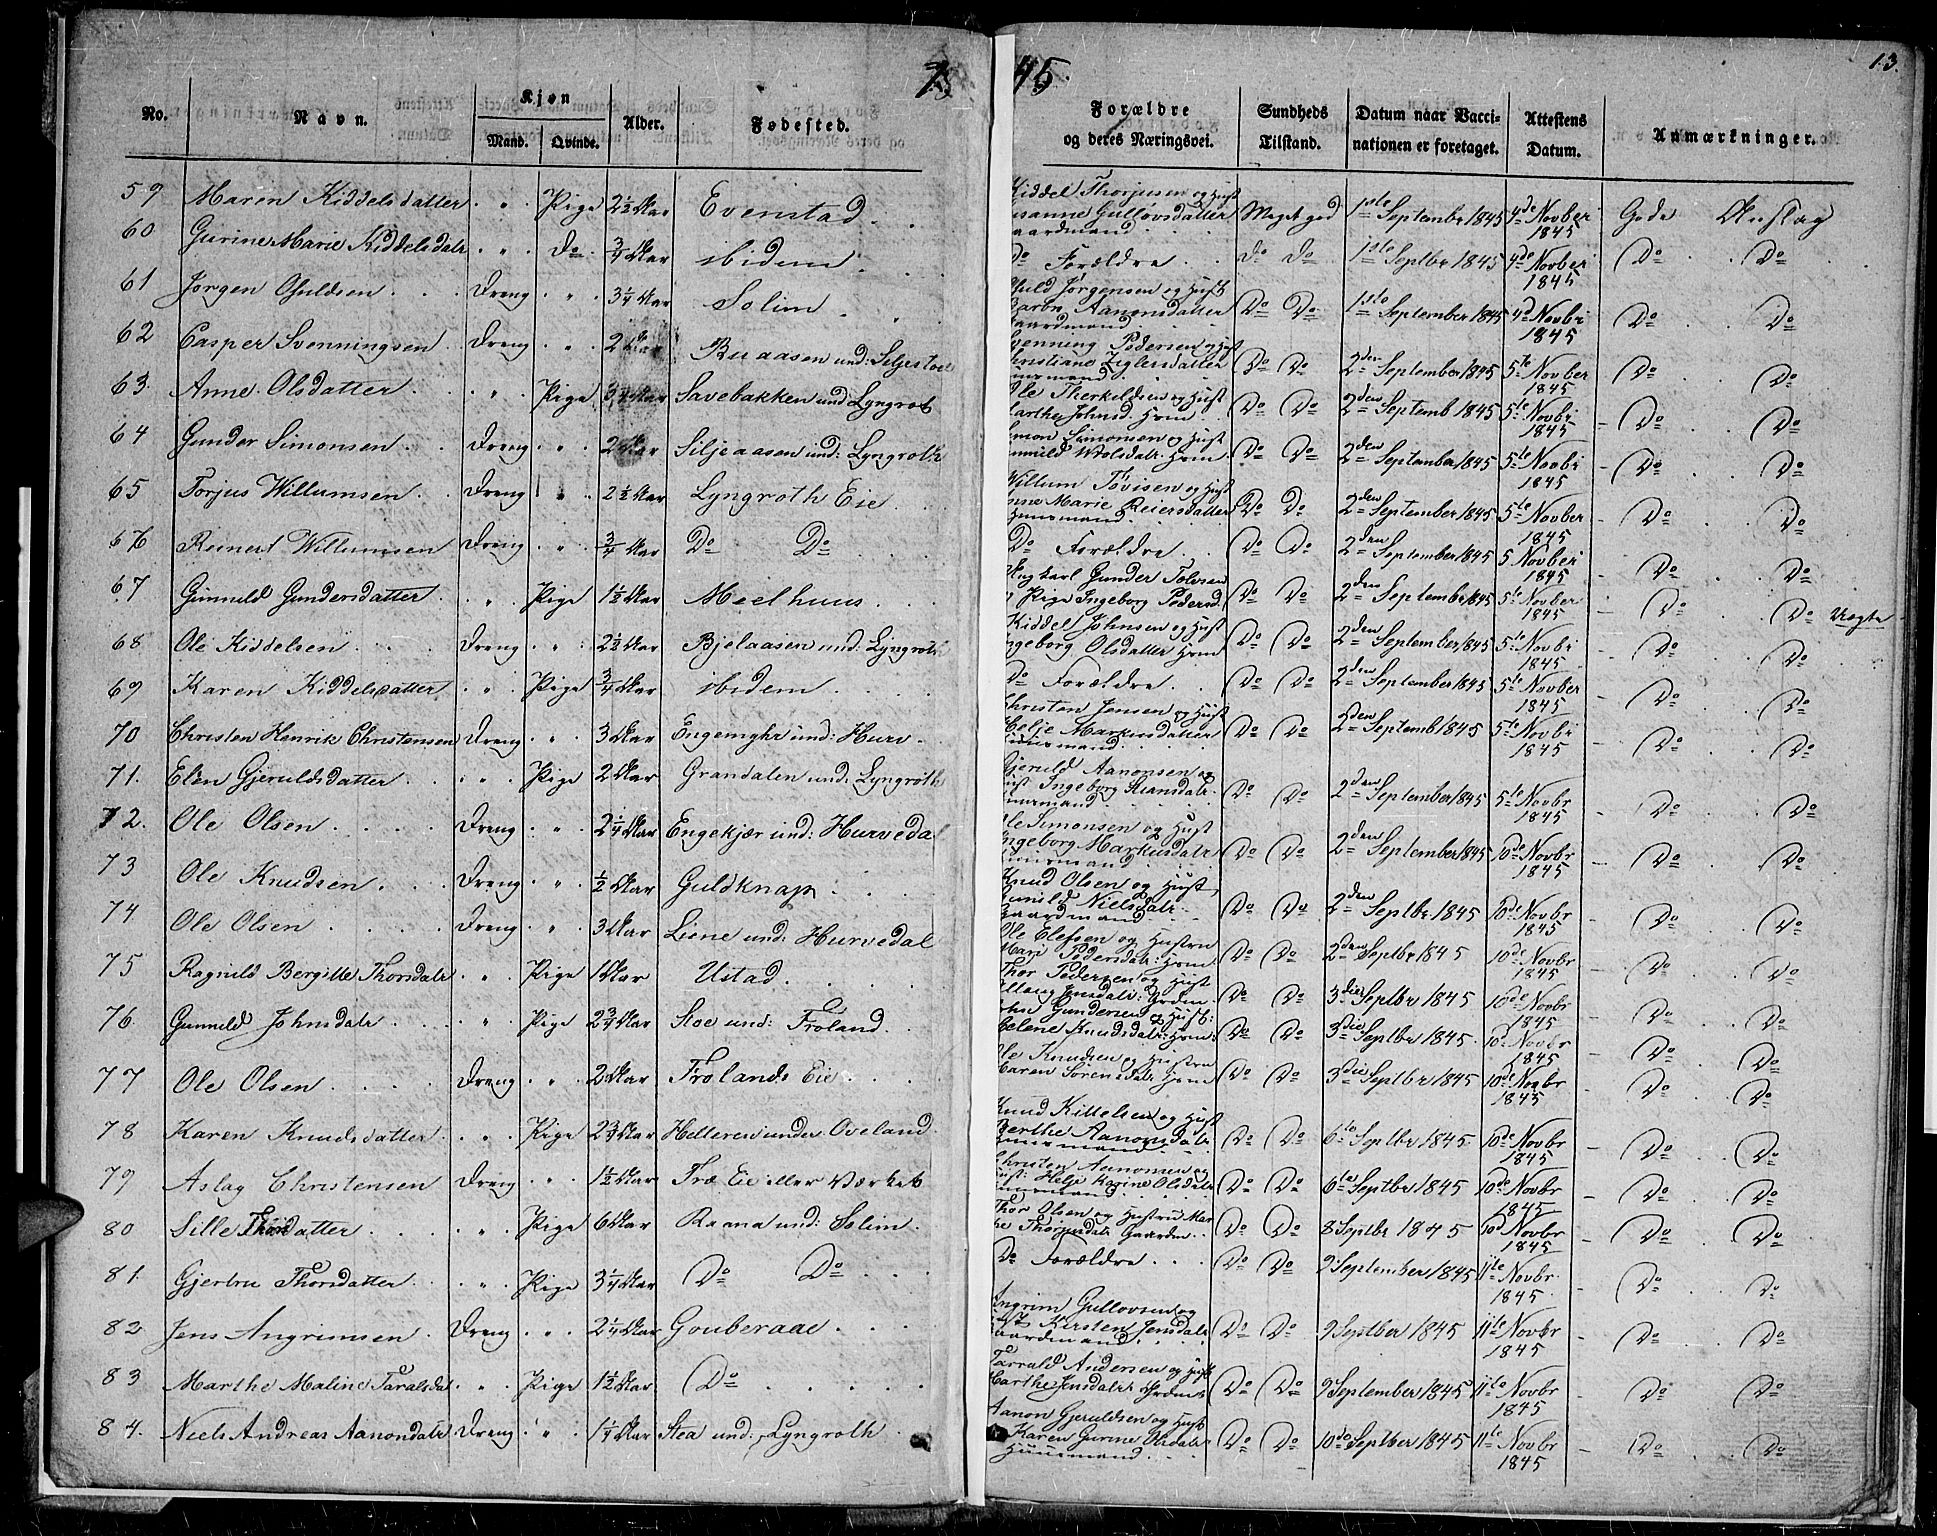 1845
13.
No. Navn. Kjøn Mand. Qvinde. Alder. Fødested. Forældre og deres Næringsvei. Sundheds Tilstand. Datum naar Vaccinationen er foretaget. Attestens Datum. Anmærkninger.
59 Maren Kiddelsdatter " Pige 2½ Aar Evenstad. Kiddel Thorjusen og Hust Susanne Gulløvsdatter Gaardmand Meget god 1ste September 1845 4de Novber 1845 Gode Anslag
60 Gurine Marie Kiddelsdatr " Do ¾ Aar ibidem Do Forældre Do Do 1ste Septbr 1845 4de Novber 1845 Do Do
61 Jørgen Ouldsen Dreng " 3¼ Aar Solim Ould Jørgensen og Hust Barbro Aanonsdatter Gaardmand Do Do 1ste September 1845 4de Novbr 1845 Do Do
62 Casper Svenningsen Dreng " 2 Aar Buaasen und: Siljestvet Svenning Pedersen og Hust Christiane Ziglersdatter Huusmand Do Do 2den September 1845 5te Novber 1845 Do Do
63. Anne Olsdatter " Pige 3¼ Aar Savebakken und: Lyngrot Ole Therkildsen og Hust Marthe Johnsd. Hsm Do Do 2den Septemb 1845 5te Novbr 1845 Do Do
64 Gunder Simonsen Dreng " 2 Aar Siljeaasen und: Lyngroth Simon Simonsen og Hust Gunnild Hsm Do Do 2den September 1845 5te Novbr 1845 Do Do
65 Torjus Willumsen Dreng " 2½ Aar Lyngroth Eie Willum Tovisen og Hust Anne Marie Reiersdatter Huusmand Do Do 2den September 1845 5te Novber 1845 Do Do
66 Reinert Willumsen Dreng " ¾ Aar Do Do Do Forældre Do Do 2den September 1845 5 Novber 1845 Do Do
67 Gunnild Gundersdatter " Pige 1½ Aar Mielhuus Ungkarl Gunder Tolvsen og Pige Ingeborg Pedersd. Do Do 2den September 1845 5te Novber 1845 Do Do Uægte
68 Ole Kiddelsen Dreng " 2½ Aar Bjelaasen und: Lyngroth Kiddel Johnsen og Hust Ingeborg Olsdatter Hsm Do Do 2den September 1845 5te Novbr 1845 Do Do
69 Karen Kiddelsdatter " Pige ¾ Aar ibidem Do Forældre Do Do 2den September 1845 5te Novber 1845 Do Do
70 Christen Henrik Christensen Dreng " 3 Aar Engemyhr und: Hurv. Christen Jensen og Hust Helje Markusdatter Huusmand Do Do 2den Septemb 1845 5te Novbr 1845 Do Do
71. Elen Gjeruldsdatter " Pige 2 Aar Grandalen und: Lyngroth Gjeruld Aanonsen og Hust Ingeborg Steansdatr. Huusmand Do Do 2den September 1845 5te Novbr 1845 Do Do
72. Ole Olsen Dreng " 2¼ Aar Engekjær und: Hurvedal Ole Simonsen og Hust Ingeborg Markusdatr Huusmand Do Do 2den September 1845 10de Novbr 1845 Do Do
73 Ole Knudsen Dreng " ½ Aar Guldknap Knud Olsen og Hust Gunild Nielsdatr. Gaardmand Do Do 2den Septbr 1845 10de Novbr 1845 Do Do
74 Ole Olsen Dreng " 3 Aar Liene und: Hurvedal Ole Elefsen og Hustru Mari Pedersdatr: Hsm Do Do 2den Septbr 1845 10de Novbr 1845 Do Do
75 Ragnild Bergitte Thorsdatr " Pige 1 Aar Ustad. Thor Pedersen og Hust Jensdatr: Grdm. Do Do 3die Septbr 1845 10de Novbr 1845 Do Do
76. Gunnild Johnsdatr " Pige 2¾ Aar Stoe und: Froland. John Gundersen og Hust: Helene Knudsdatr: Hsm: Do Do 3die Septbr 1845 10de Novbr 1845 Do Do
77 Ole Olsen Dreng " 2 Aar Frolands Eie. Ole Knudsen og Hustru Maren Sørensdatr Hsm Do Do 3die Septbr 1845 10de Novbr 1845 Do Do
78 Karen Knudsdatter " Pige 2¾ Aar Helleren under Oveland Knud Kittelsen og Hust Berthe Aanonsdatr Huusmand Do Do 6te Septbr 1845 10de Novbr 1845 Do Do
79 Aslag Christensen Dreng " 1½ Aar Træ Eie eller Værket Christen Aanonsen og Hust: Helje Karine Olsdatr Huusmand Do Do 6te Septbr 1845 10de Novbr 1845 Do Do
80 Sille Thorsdatter " Pige 6 Aar Raana und: Solim. Thor Olsen og Hustru Marthe Thorjusdatr Gaardm. Do Do 8 Septbr 1845 10d Novbr 1845 Do Do
81. Gjertru Thorsdatter " Pige 3¼ Aar Do Do Do Forældre Do Do 9 September 1845 11te Novbr. 1845 Do Do
82 Jens Angrimsen Dreng " 2¼ Aar Gouberaae Angrim Gullovsen og Hust. Kirsten Jensdatr Gaardmand Do Do 9 Septber 1845 11te Novbr 1845 Do Do
83 Marthe Maline Taralsdat " Pige 1½ Aar Do Tarrald Andersen og Hust Marthe Jensdatr Grdm: Do Do 9 September 1845 11te Novbr 1845 Do Do
84. Niels Andreas Aanondatr Dreng " 1¼ Aar Stea und: Lyngroth Aanon Gjeruldsen og Hust Karen Gurine Olsdatr Huusmand Do Do 10de Septber 1845 11te Novbr 1845 Do Do